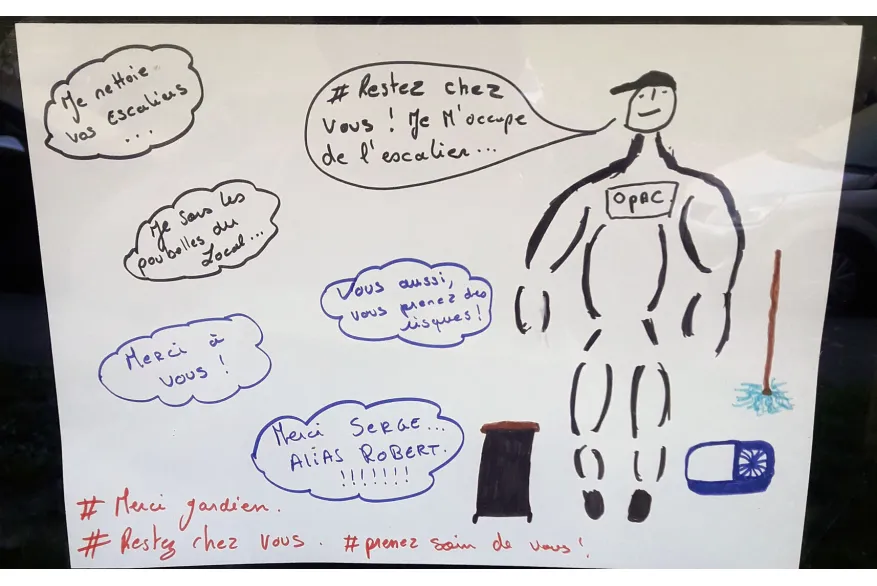 Je nettoie
vos escaliers
...
# Restez chez
vous ! Je M'occupe
de l'escalier...
OPAC
Je sors les
poubelles du
Local...
Vous aussi,
vous prenez des
risques !
Merci à
vous !
Merci SERGE...
ALIAS ROBERT.
!!!!!!!
# Merci gardien.
# Restez chez vous. # prenez soin de vous !